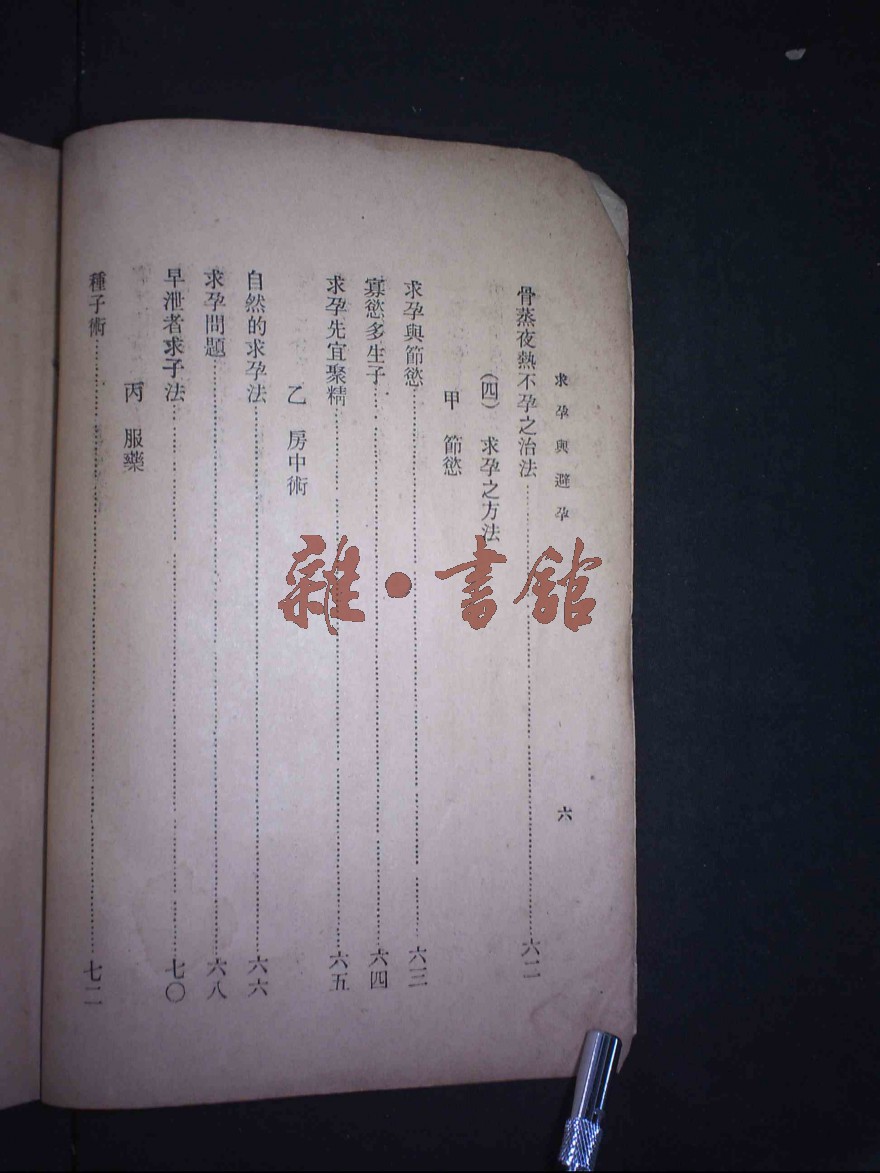 求孕與避孕
六
骨蒸夜熱不孕之治法……六二
(四) 求孕之方法
甲 節慾
求孕與節慾……六三
寡慾多生子……六四
求孕先宜聚精……六五
乙 房中術
自然的求孕法……六六
求孕問題……六八
早泄者求子法……七〇
丙 服藥
種子術……七二
雜·書館